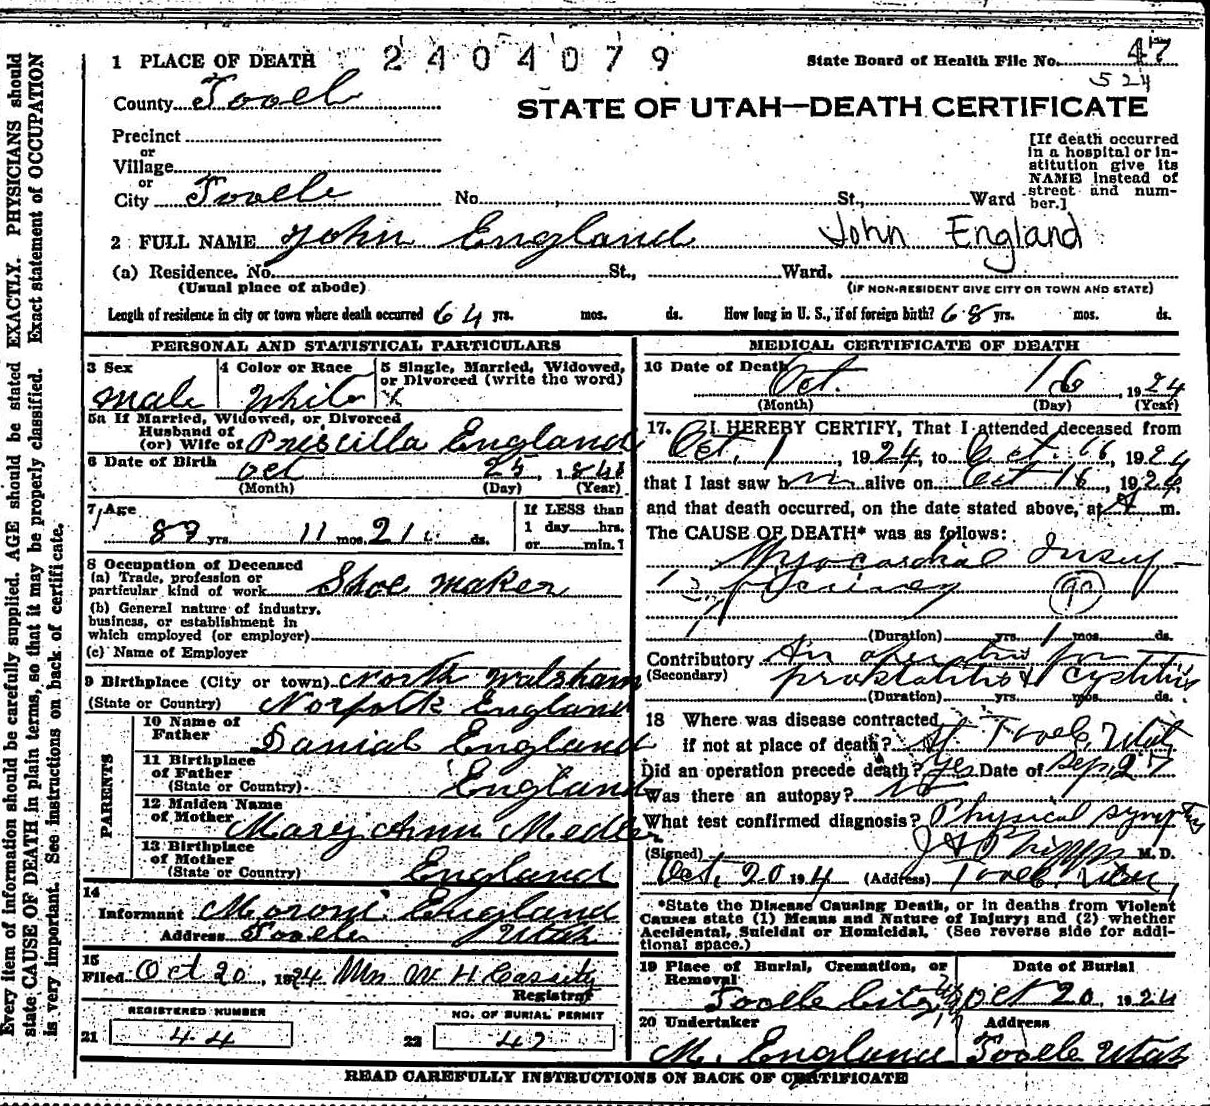 1 PLACE OF DEATH 2404079 State Board of Health File No. 47
524
County Tooele
STATE OF UTAH—DEATH CERTIFICATE
Precinct
or
Village
or
City Tooele No. , St., Ward
[If death occurred
in a hospital or in-
stitution give its
NAME instead of
street and num-
ber.]
2 FULL NAME John England John England
(a) Residence. No. St., Ward.
(Usual place of abode) (IF NON-RESIDENT GIVE CITY OR TOWN AND STATE)
Length of residence in city or town where death occurred 64 yrs. mos. ds. How long in U. S., if of foreign birth? 68 yrs. mos. ds.
PERSONAL AND STATISTICAL PARTICULARS
3 Sex
male
4 Color or Race
White
5 Single, Married, Widowed,
or Divorced (write the word)
X
5a If Married, Widowed, or Divorced
Husband of
(or) Wife of Priscilla England
6 Date of Birth
Oct 25, 1841
(Month) (Day) (Year)
7 Age
yrs. 11 mos. 21 ds.
If LESS than
1 day hrs.
or min.?
8 Occupation of Deceased
(a) Trade, profession or
particular kind of work Shoe maker
(b) General nature of industry,
business, or establishment in
which employed (or employer)
(c) Name of Employer
9 Birthplace (City or town) North Walsham
(State or Country) Norfolk England
PARENTS
10 Name of
Father Danial England
11 Birthplace
of Father
(State or Country) England
12 Maiden Name
of Mother Mary Ann Medler
13 Birthplace
of Mother
(State or Country) England
14
Informant Moroni England
Address Tooele Utah
15
Filed Oct 20, 1924 Mrs W H Cassity
Registrar
REGISTERED NUMBER
21 44
NO. OF BURIAL PERMIT
22 42
MEDICAL CERTIFICATE OF DEATH
16 Date of Death
Oct. 16, 1924
(Month) (Day) (Year)
17. I HEREBY CERTIFY, That I attended deceased from
Oct. 1, 1924, to Oct. 16, 1924
that I last saw him alive on Oct 16, 1924,
and that death occurred, on the date stated above, at m.
The CAUSE OF DEATH* was as follows:
Myocardial Insuf-
ficiency 90
(Duration) yrs. 1 mos. ds.
Contributory An operation for
(Secondary) prostatitis & cystitis
(Duration) yrs. mos. ds.
18 Where was disease contracted
if not at place of death? At Tooele, Utah
Did an operation precede death? Yes Date of Sep. 27
Was there an autopsy? No
What test confirmed diagnosis? Physical symptms
(Signed) M. D.
Oct, 20 1924 (Address) Tooele, Utah,
*State the Disease Causing Death, or in deaths from Violent
Causes state (1) Means and Nature of Injury; and (2) whether
Accidental, Suicidal or Homicidal. (See reverse side for addi-
tional space.)
19 Place of Burial, Cremation, or
Removal
Tooele City
Date of Burial
Oct 20, 1924
20 Undertaker
M. England
Address
Tooele Utah
READ CAREFULLY INSTRUCTIONS ON BACK OF CERTIFICATE
Every item of information should be carefully supplied. AGE should be stated EXACTLY. PHYSICIANS should
state CAUSE OF DEATH in plain terms, so that it may be properly classified. Exact statement of OCCUPATION
is very important. See instructions on back of certificate.